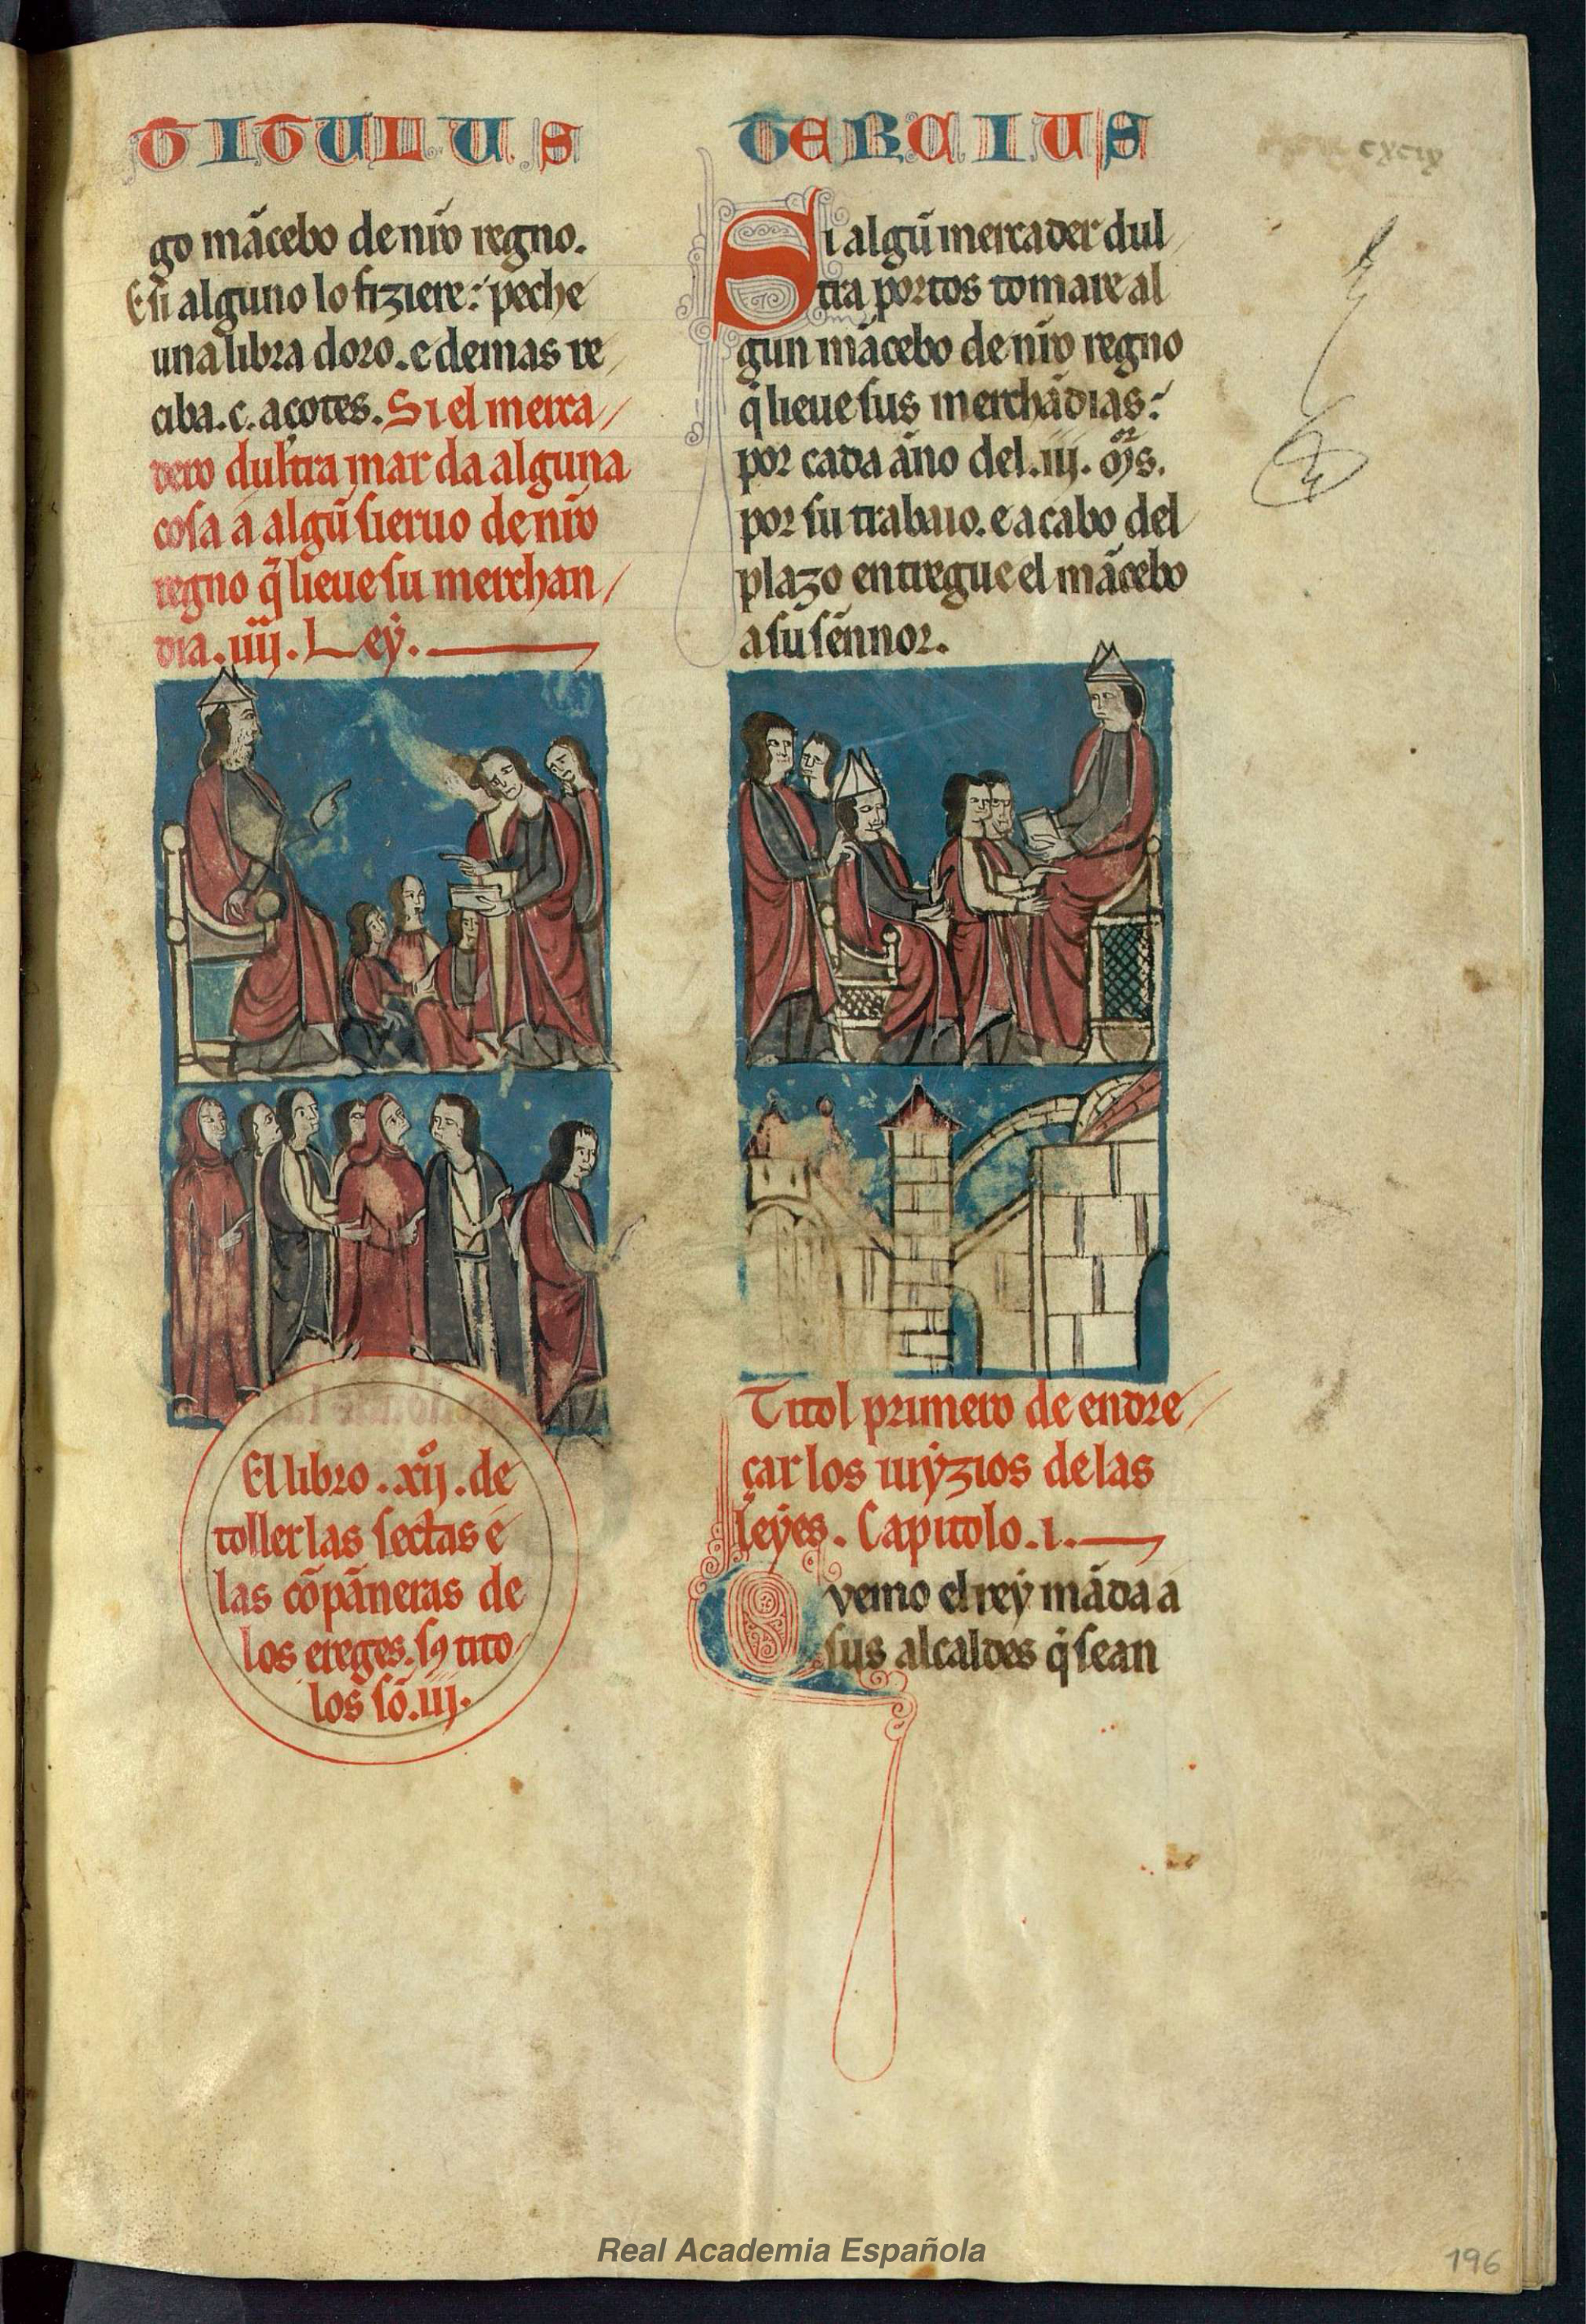 TITULUS TERCIUS
cxcix
go mãcebo de nr̃o regno.
E si alguno lo fiziere: peche
una libra doro. e demas re
ciba .c. açotes. Si el merca
dero dultra mar da alguna
cosa a algũ sieruo de nr̃o
regno q̃ lieue su merchan
dia .iiij. Ley.
El libro .xijº. de
toller las sectas e
las cõpãneras de
los ereges. sꝯ tito
los sõ .iij.
Si algũ mercader dul
tra portos tomare al
gun mãcebo de nr̃o regno
q̃ lieue sus merchãdias:
por cada ãno del .iij.
por su trabaio. e a cabo del
plazo entregue el mãcebo
a su sẽnnor.
Titol primero de endre
çar los iuyzios de las
leyes. Capitolo .i.
Quemo el rey mãda a
sus alcaldes q̃ sean
Real Academia Española
196